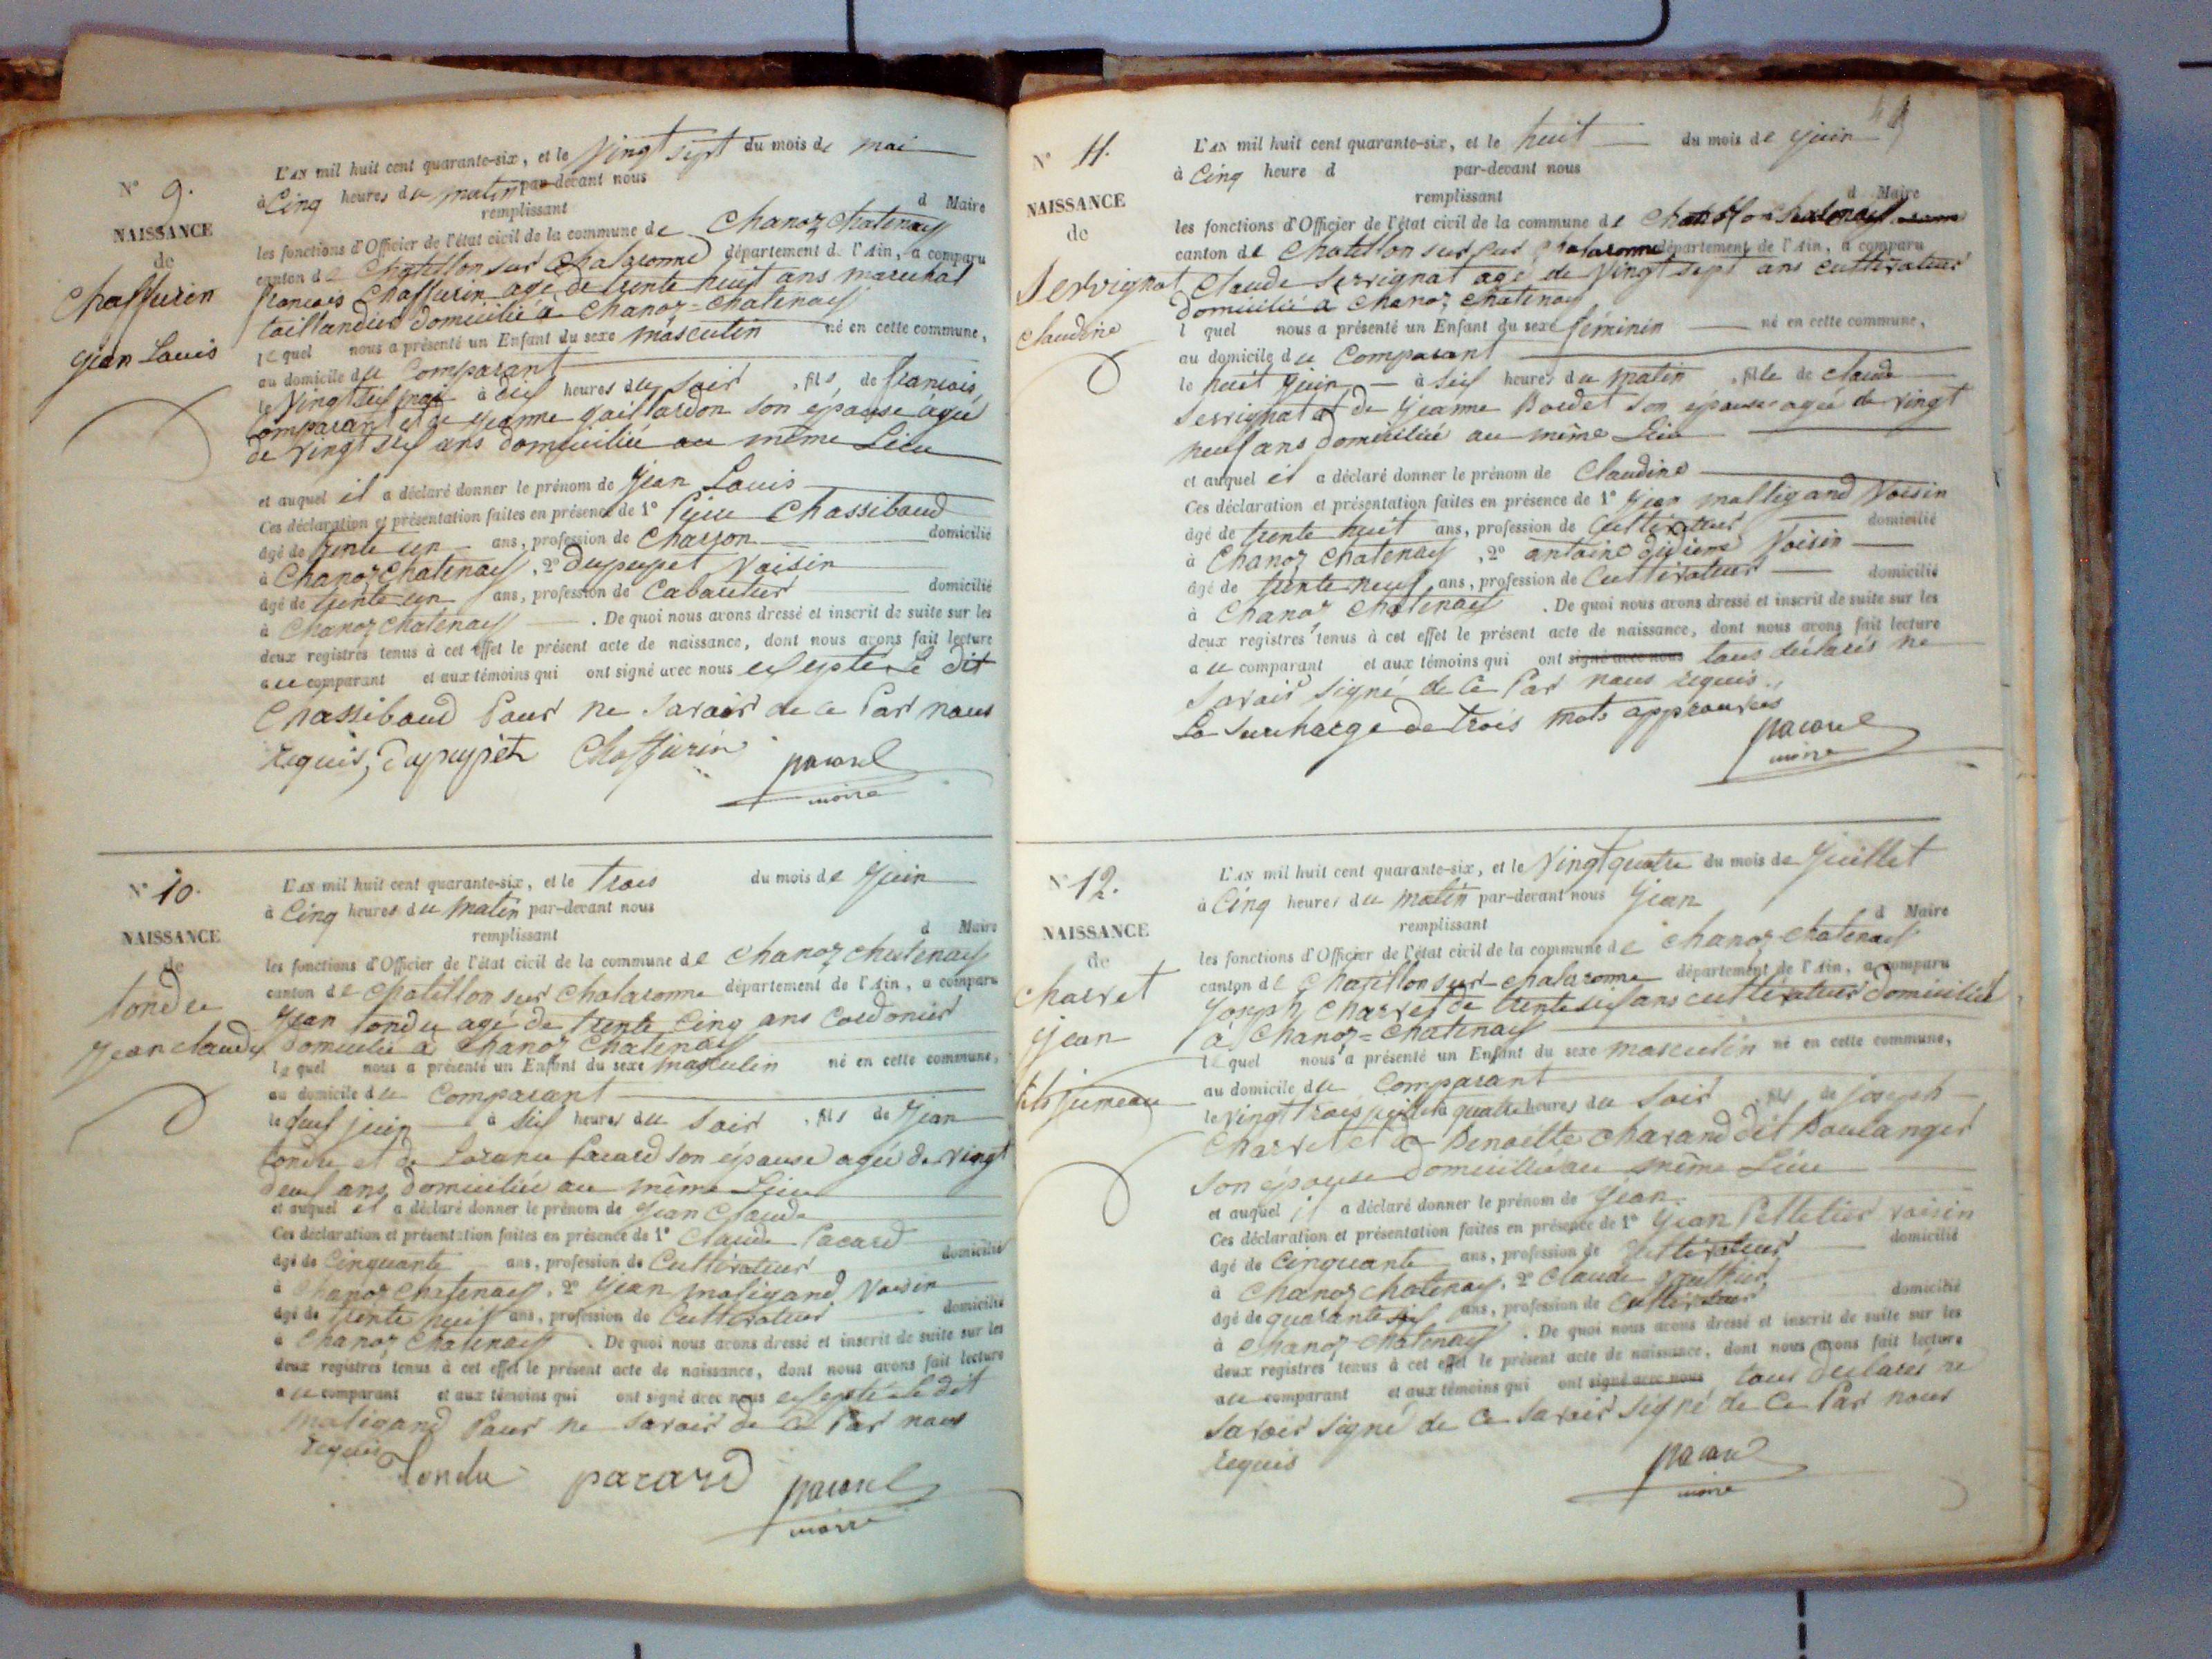 N° 9.
NAISSANCE
de
Chaffurin
Jean Louis
L'AN mil huit cent quarante-six, et le Vingt sept du mois de mai
à Cinq heures du matin par-devant nous
remplissant d Maire
les fonctions d'Officier de l'état civil de la commune de Chanoz Chatenay
canton de Chatillon sur Chalaronne département d. l'Ain, a comparu
francois Chaffurin agé de trente huit ans marechal
taillandier domicilié à Chanoz=Chatenay
lequel nous a présenté un Enfant du sexe masculin né en cette commune,
au domicile du Comparant
le Vingt six mai à dix heures du soir, fils de francois
Comparant et de Jeanne gaillardon son épouse agée
de vingt six ans domiciliée au même Lieu
et auquel il a déclaré donner le prénom de Jean Louis
Ces déclaration et présentation faites en présence de 1° Chassiboud
âgé de trente un ans, profession de Charron domicilié
à Chanoz Chatenay, 2° Dupupet Voisin
âgé de trente un ans, profession de Cabartier domicilié
à Chanoz Chatenay. De quoi nous avons dressé et inscrit de suite sur les
deux registres tenus à cet effet le présent acte de naissance, dont nous avons fait lecture
au comparant et aux témoins qui ont signé avec nous exepté Le dit
Chassiboud Pour ne savoir de ce Par nous
requis, Dupupet Chaffurin pacard
maire
N° 10.
NAISSANCE
de
tondu
Jean claude
L'AN mil huit cent quarante-six, et le trois du mois de Juin
à Cinq heures du matin par-devant nous
remplissant d Maire
les fonctions d'Officier de l'état civil de la commune de Chanoz Chatenay
canton de Chatillon sur Chalaronne département de l'Ain, a comparu
Jean tondu agé de trente Cinq ans Cordonier
domicilié à Chanoz Chatenay
lequel nous a présenté un Enfant du sexe masculin né en cette commune,
au domicile du Comparant
le deux juin à six heures du soir, fils de Jean
tondu et de Pacard son épouse agée de vingt
deux ans domiciliée au même Lieu
et auquel il a déclaré donner le prénom de Jean Claude
Ces déclaration et présentation faites en présence de 1° Claude Pacard
âgé de Cinquante ans, profession de Cultivateur domicilié
à Chanoz Chatenay, 2° Jean maligand Voisin
âgé de trente huit ans, profession de Cultivateur domicilié
à Chanoz Chatenay. De quoi nous avons dressé et inscrit de suite sur les
deux registres tenus à cet effet le présent acte de naissance, dont nous avons fait lecture
au comparant et aux témoins qui ont signé avec nous exepté le dit
maligand Pour ne savoir de ce Par nous
requis Tondu pacard pacard
maire
N° 11.
NAISSANCE
de
Servignat
Claudine
L'AN mil huit cent quarante-six, et le huit du mois de Juin
à Cinq heure d par-devant nous
remplissant d Maire
les fonctions d'Officier de l'état civil de la commune de
canton de Chatillon sur sur Chalaronne département de l'Ain, a comparu
Claude Servignat agé de Vingt sept ans cultivateur
domicilié à Chanoz Chatenay
l quel nous a présenté un Enfant du sexe féminin né en cette commune,
au domicile du Comparant
le huit Juin à six heures du matin, fille de claude
Servignat et de Jeanne Bordet son épouse agée de vingt
neuf ans domiciliée au même Lieu
et auquel il a déclaré donner le prénom de Claudine
Ces déclaration et présentation faites en présence de 1° Jean malligand Voisin
âgé de trente huit ans, profession de Cultivateur domicilié
à Chanoz Chatenay, 2° antoine Voisin
âgé de trente neuf ans, profession de Cultivateur domicilié
à Chanoz Chatenay. De quoi nous avons dressé et inscrit de suite sur les
deux registres tenus à cet effet le présent acte de naissance, dont nous avons fait lecture
au comparant et aux témoins qui ont signé avec nous tous déclarés ne
Savoir signé de Ce Par nous requis.
La surcharge de trois mots approuvés
pacard
maire
N° 12.
NAISSANCE
de
Charvet
Jean
fils jumeau
L'AN mil huit cent quarante-six, et le Vingt quatre du mois de Juillet
à Cinq heures du matin par-devant nous Jean
remplissant d Maire
les fonctions d'Officier de l'état civil de la commune de Chanoz Chatenay
canton de Chatillon sur-chalaronne département de l'Ain, a comparu
Joseph Charvet de trente six ans cultivateur domicilié
à Chanoz=Chatenay
lequel nous a présenté un Enfant du sexe masculin né en cette commune,
au domicile du Comparant
le Vingt trois juillet à quatre heures du soir, fils de joseph
Charvet et de Benoitte Charand dit Boulanger
son épouse domiciliée au même Lieu
et auquel il a déclaré donner le prénom de Jean
Ces déclaration et présentation faites en présence de 1° Jean Pelletier voisin
âgé de Cinquante ans, profession de Cultivateur domicilié
à Chanoz Chatenay, 2° Claude gauthier
âgé de quarante six ans, profession de Cultivateur domicilié
à Chanoz-Chatenay. De quoi nous avons dressé et inscrit de suite sur les
deux registres tenus à cet effet le présent acte de naissance, dont nous avons fait lecture
au comparant et aux témoins qui ont signé avec nous tous déclarés ne
savoir signé de Ce savoir signé de Ce Par nous
requis
pacard
maire